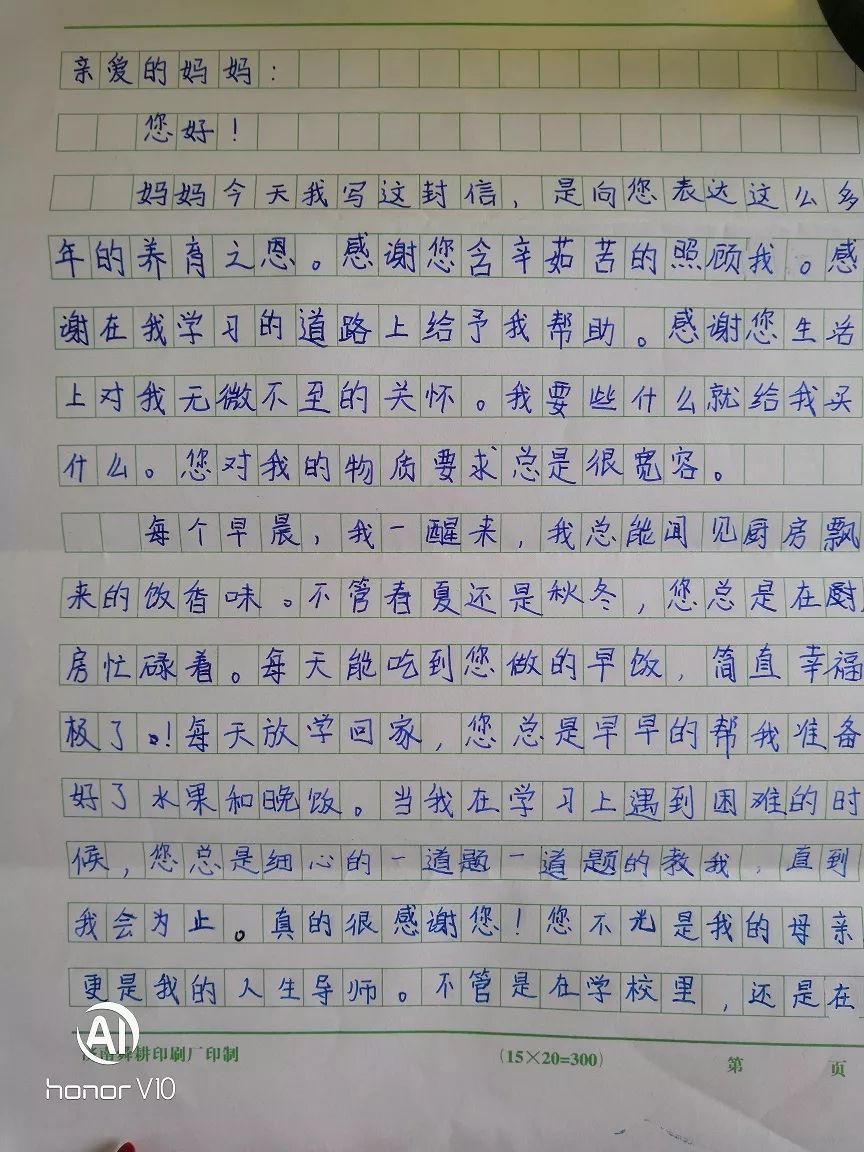 亲爱的妈妈：
您好！
妈妈今天我写这封信，是向您表达这么多
年的养育之恩。感谢您含辛茹苦的照顾我。感
谢在我学习的道路上给予我帮助。感谢您生活
上对我无微不至的关怀。我要些什么就给我买
什么。您对我的物质要求总是很宽容。
每个早晨，我一醒来，我总能闻见厨房飘
来的饭香味。不管春夏还是秋冬，您总是在厨
房忙碌着。每天能吃到您做的早饭，简直幸福
极了。！每天放学回家，您总是早早的帮我准备
好了水果和晚饭。当我在学习上遇到困难的时
候，您总是细心的一道题一道题的教我，直到
我会为止。真的很感谢您！您不光是我的母亲
更是我的人生导师。不管是在学校里，还是在
济南舜耕印刷厂印制 (15×20=300) 第 页
AI
honor V10